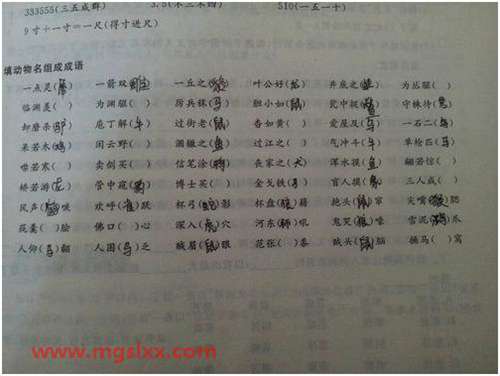 333555(三五成群) 3.5(不三不四) 510(一五一十)
9寸+一寸=一尺(得寸进尺)
填动物名组成成语
一点灵(犀) 一箭双(雕) 一丘之(貉) 叶公好(龙) 井底之(蛙) 为丛驱( )
临渊羡( ) 为渊驱( ) 厉兵秣(马) 胆小如(鼠) 瓮中捉(鳖) 守株待(兔)
卸磨杀(驴) 庖丁解(牛) 过街老(鼠) 杳如黄( ) 爱屋及(乌) 一石二(鸟)
呆若木(鸡) 闲云野( ) 涸辙之(鱼) 过江之( ) 气冲斗(牛) 单枪匹(马)
噤若寒( ) 卖剑买( ) 信笔涂(鸦) 丧家之(犬) 浑水摸(鱼) 翩若惊( )
矫若游(龙) 管中窥(豹) 博士买( ) 金戈铁(马) 盲人摸(象) 三人成( )
风声(鹤)唳 欢呼(雀)跃 杯弓(蛇)影 杯盘(狼)藉 抱头(鼠)窜 尖嘴(猴)腮
花蔓( )脍 佛口( )心 深入(虎)穴 河东(狮)吼 鬼哭(狼)嚎 雪泥(鸿)爪
人仰(马)翻 人困(马)乏 贼眉(鼠)眼 花张( )客 贼头(鼠)脑 捅马( )窝
www.mgslxx.com